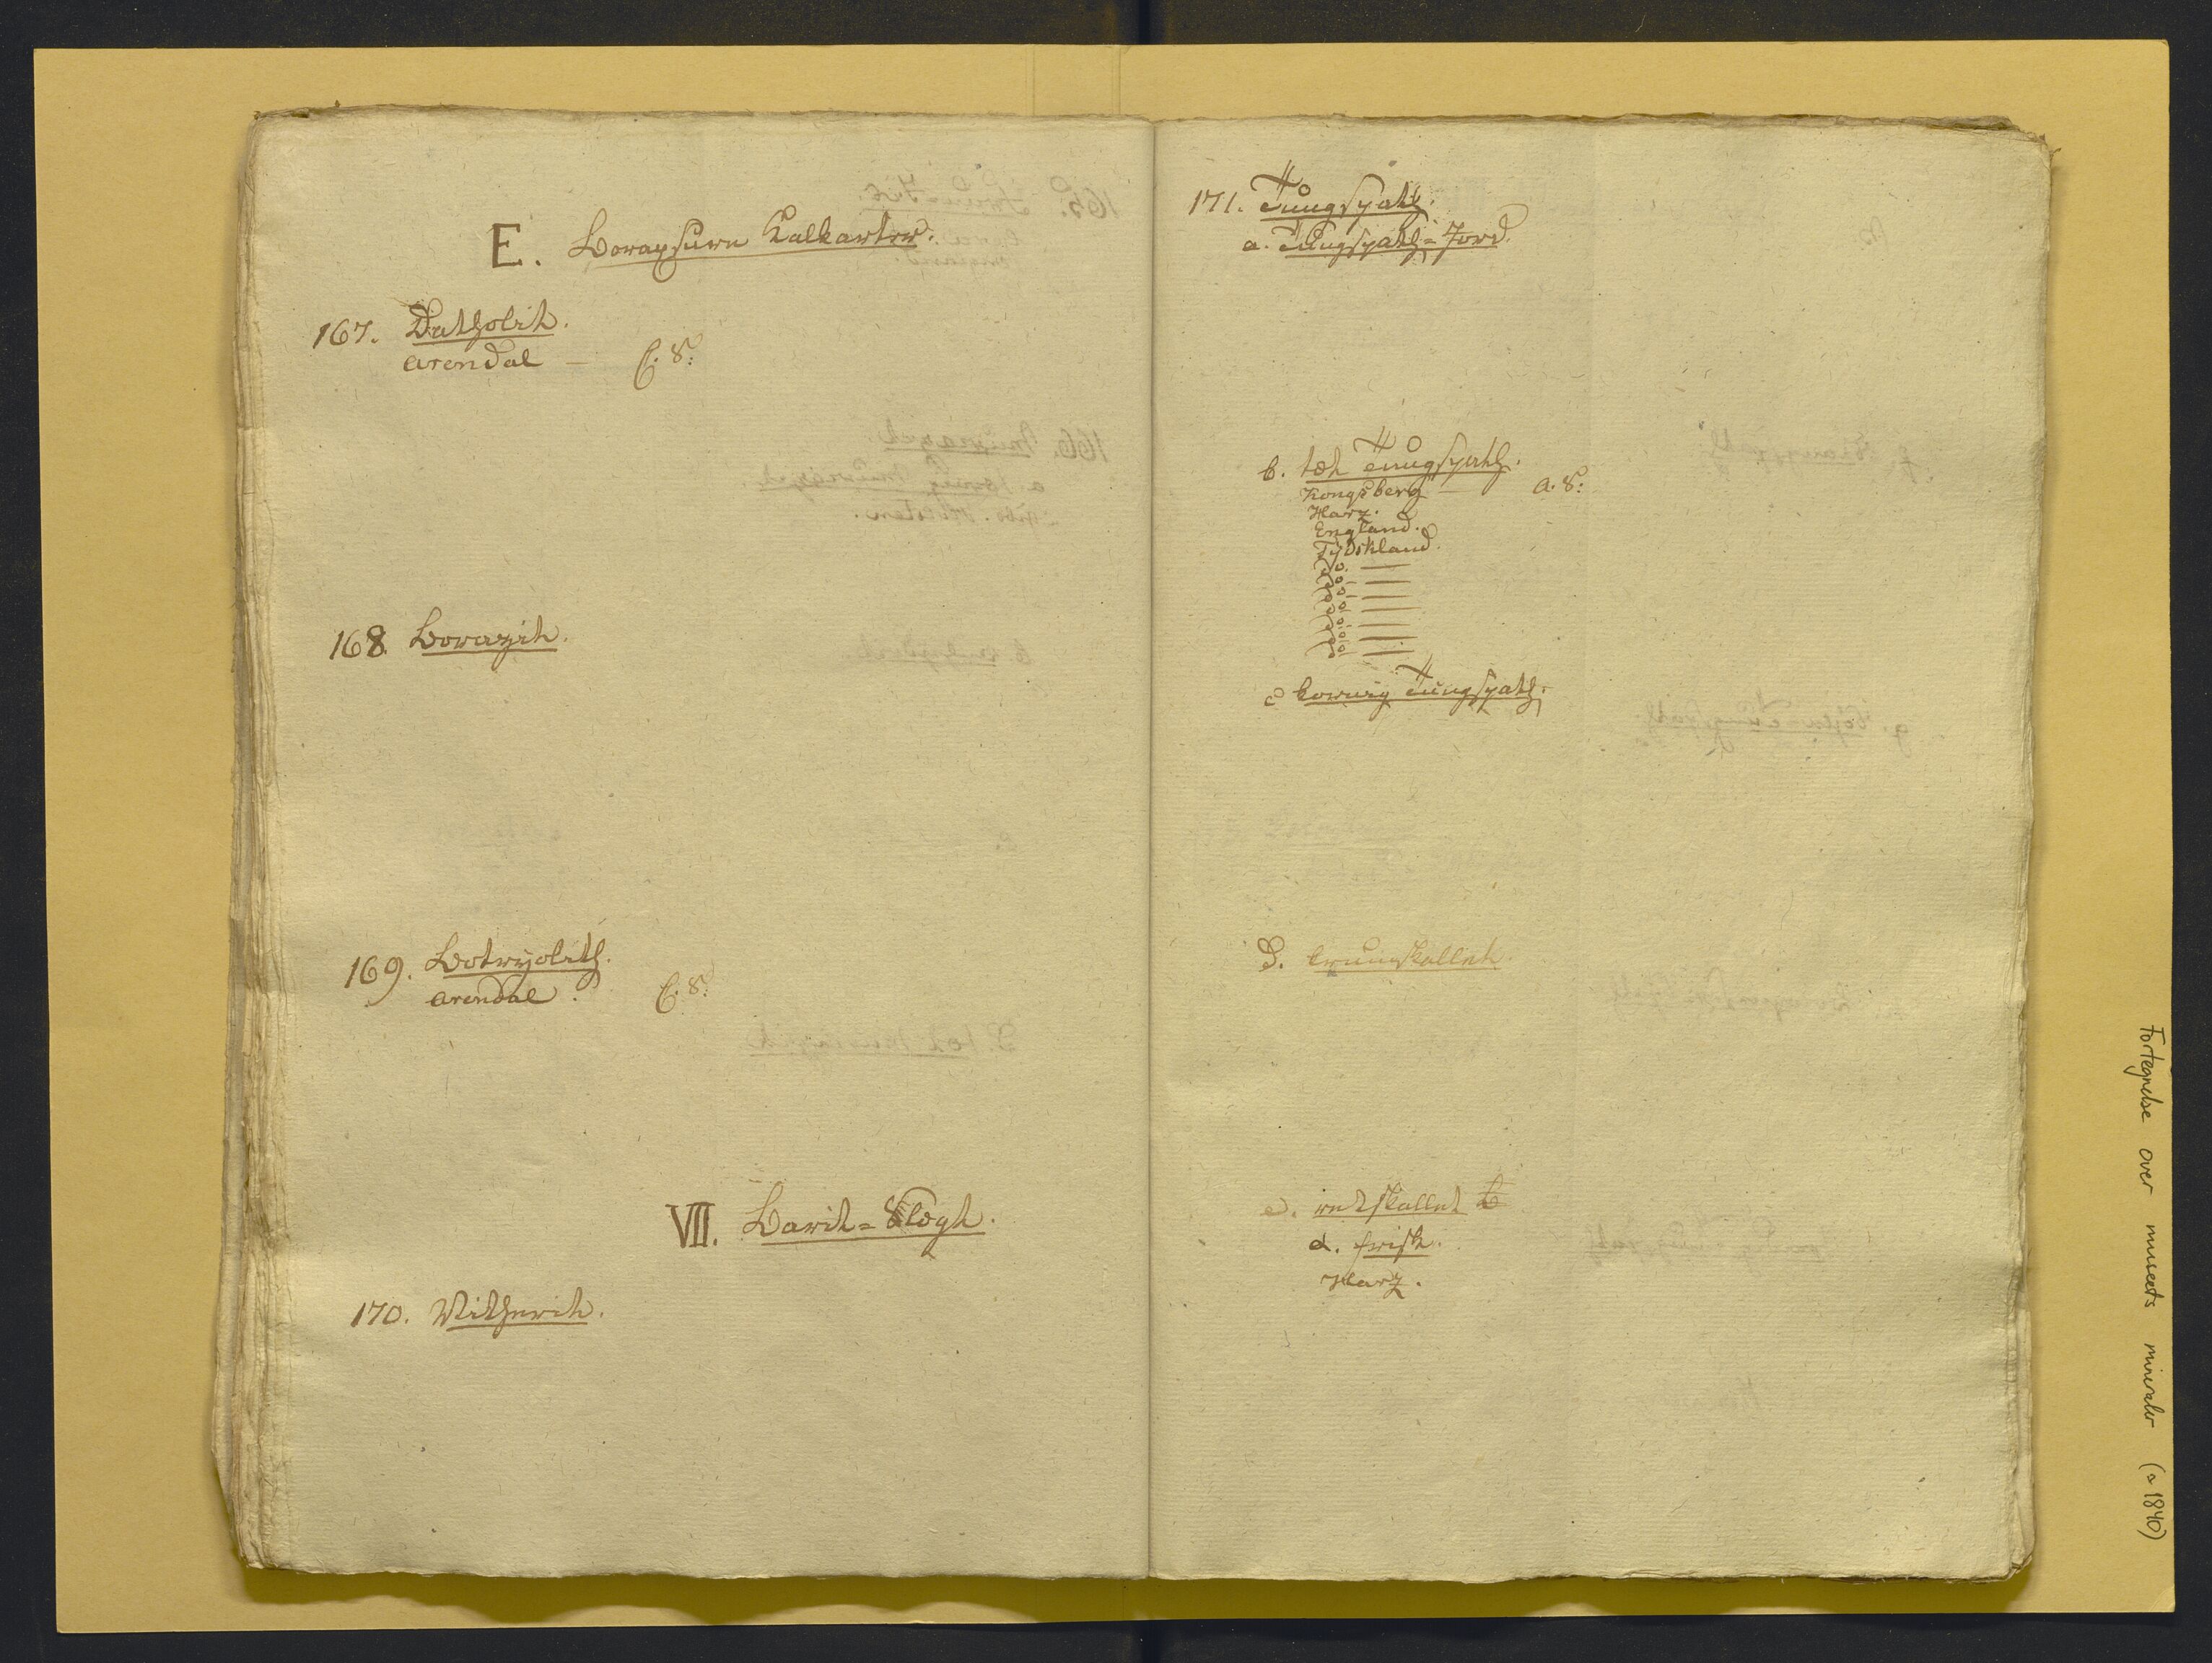 E. Boraxsure Kalkarter.
167. Datholit.
Arendal — C. 8:
168. Boracit.
169. Botryolith.
Arendal. C. 8:
VII. Barit=Slægt.
170. Witherit.
171. Tungspath.
a. Tungspath=Jord.
b. tæt Tungspath.
Kongsberg — a. 8:
Harz.
England.
Tydskland.
do. —
do —
do —
do —
do —
do —
do —
c kornig Tungspath.
d. krumskallet.
e. retskallet
α. frisk.
Harz.
Fortegnelse over museets mineraler (ca 1840)